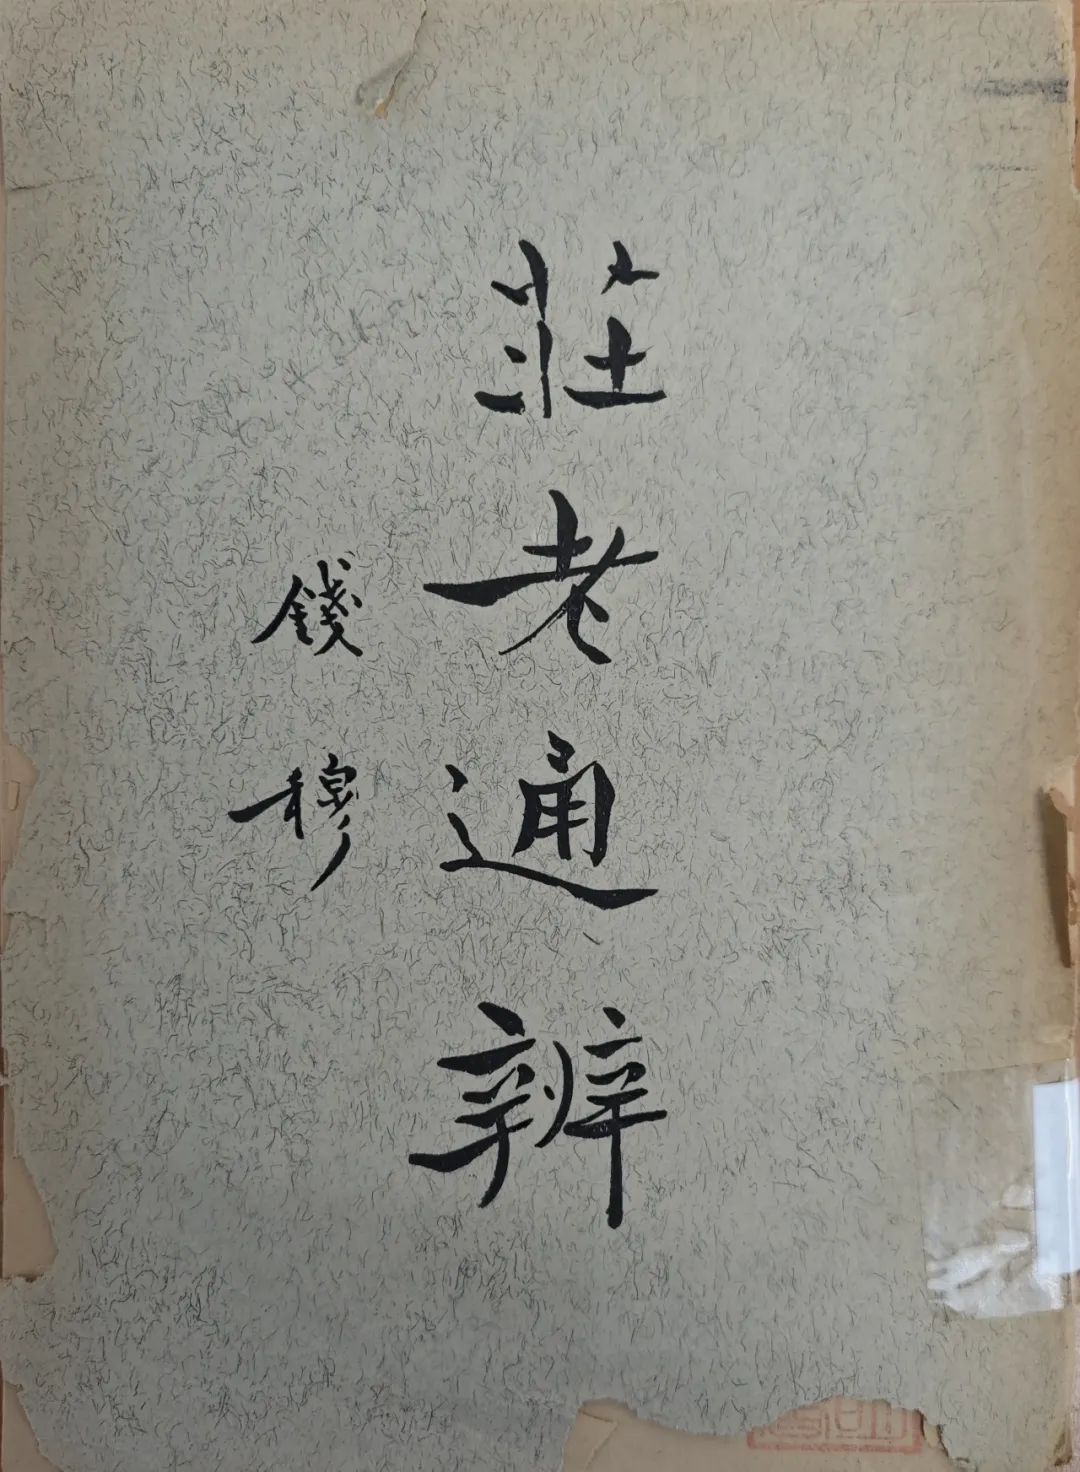 莊老通辨
錢穆